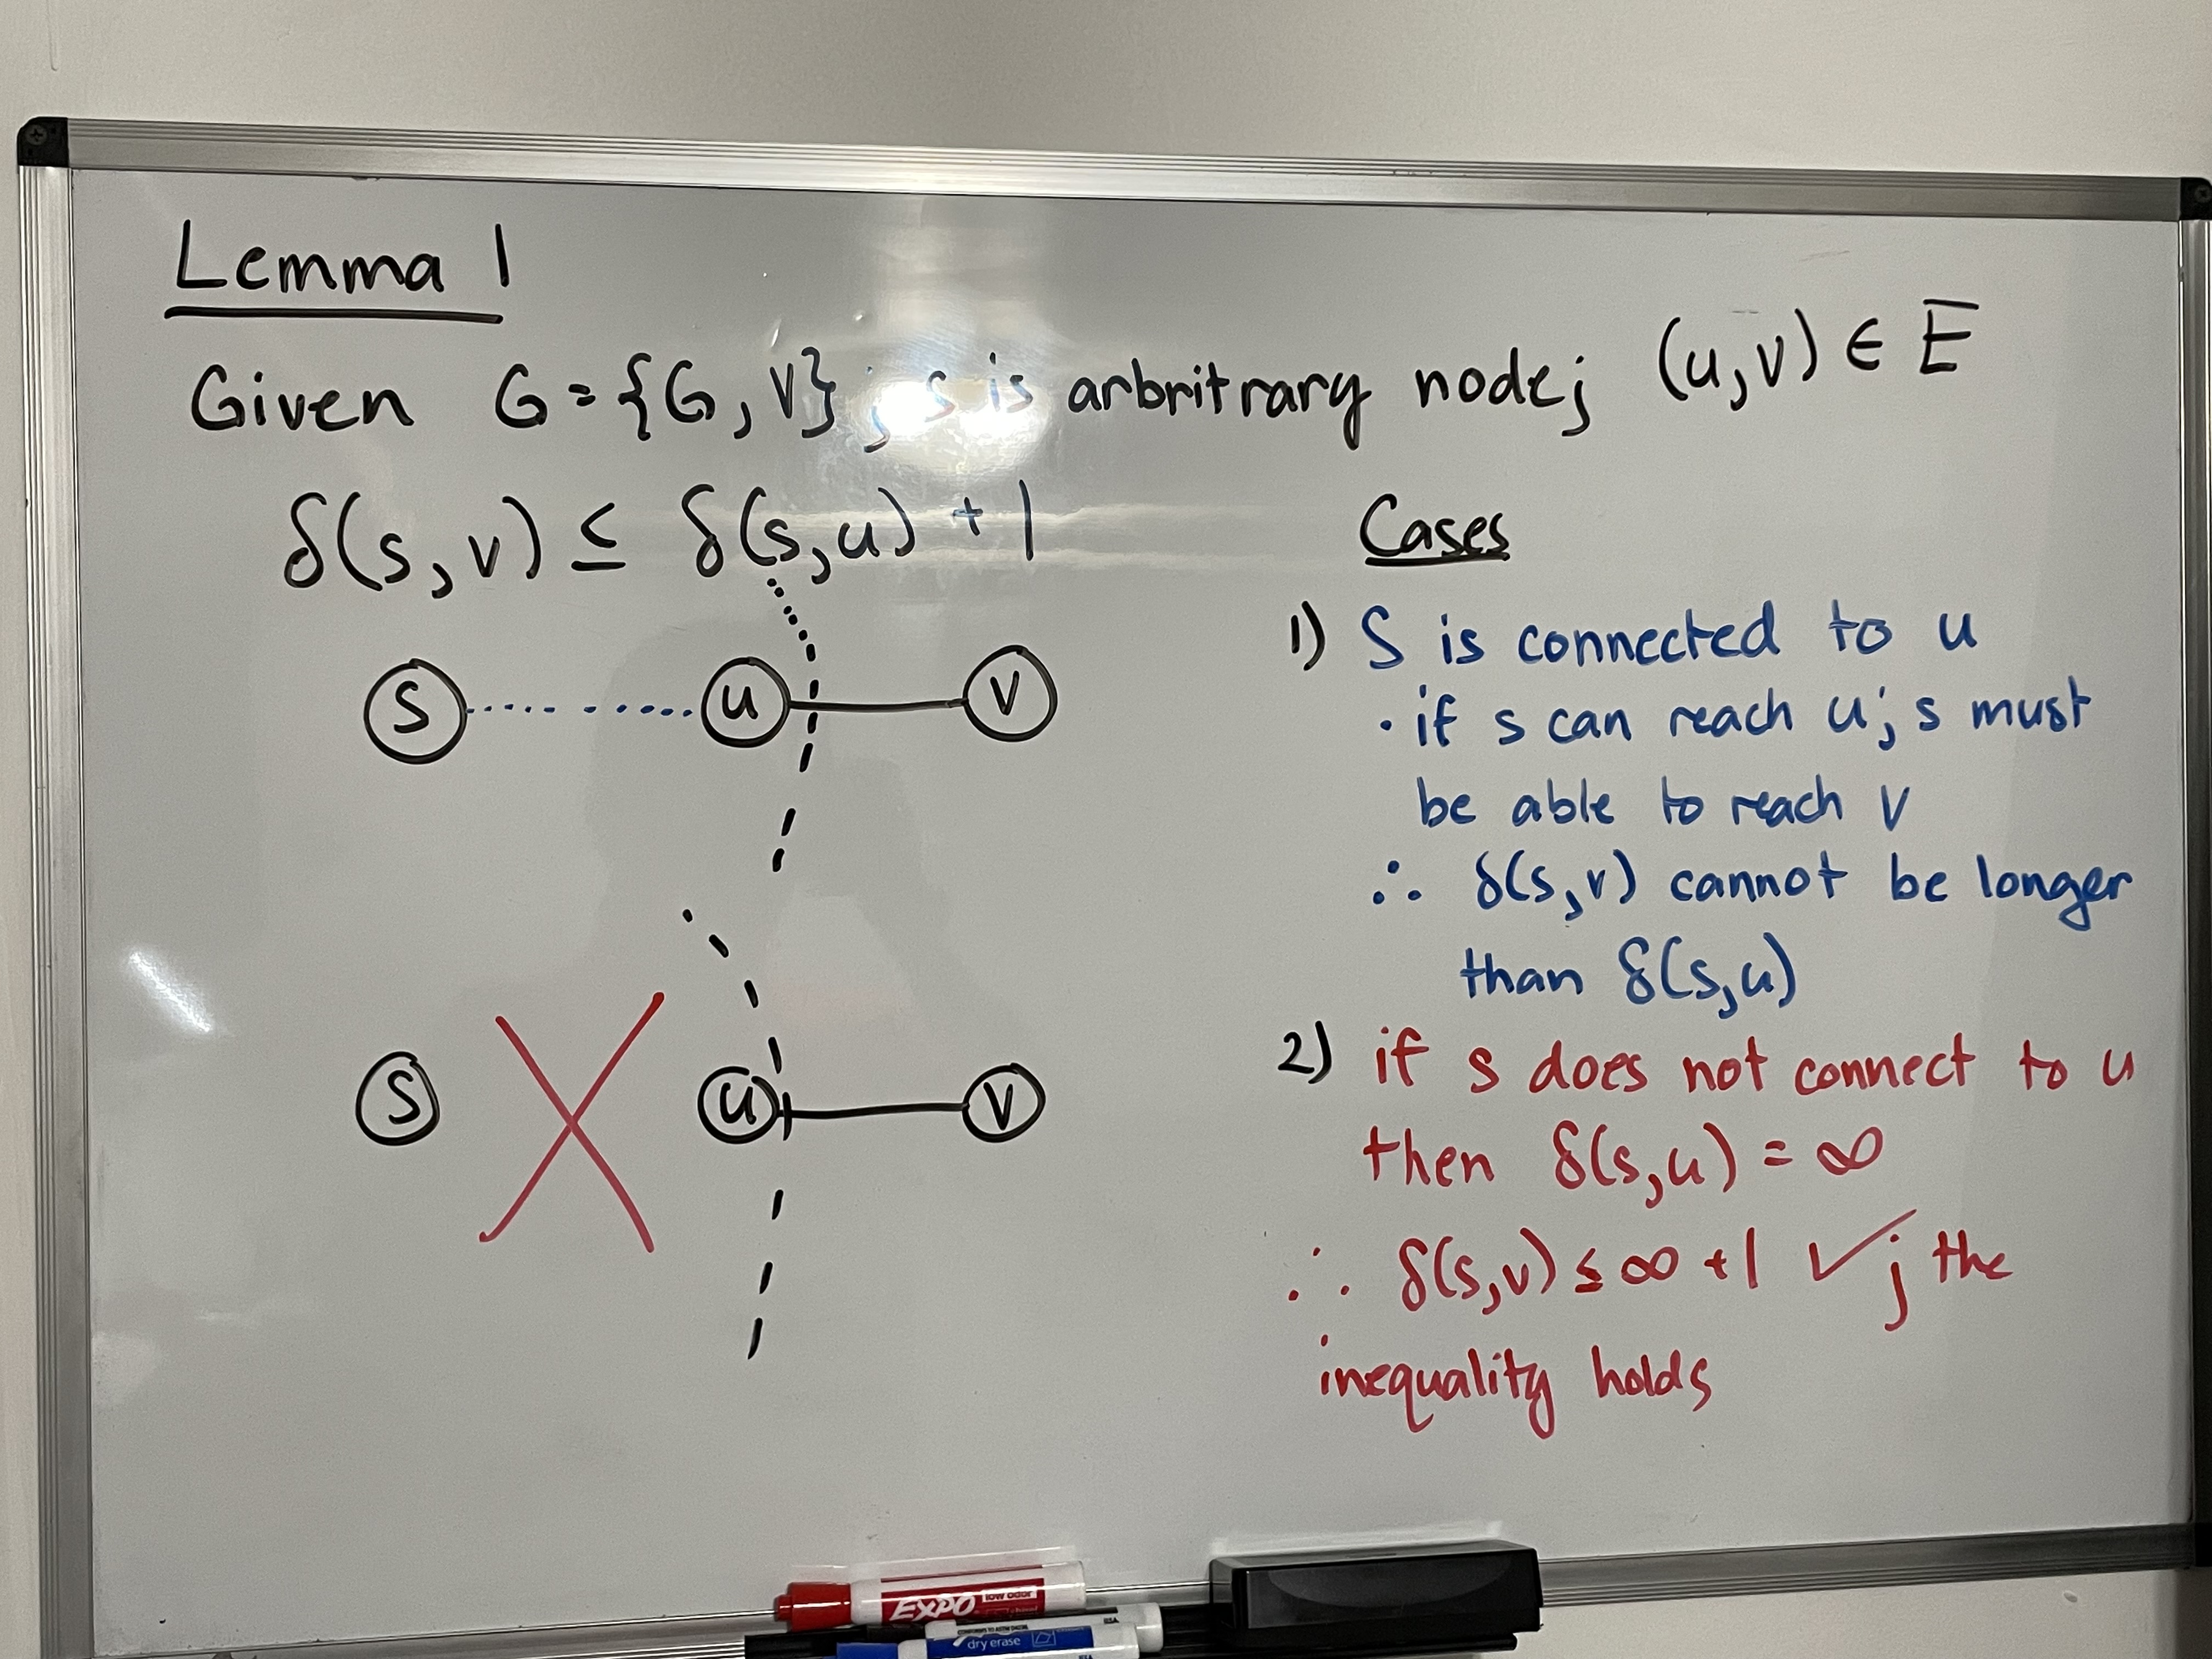 Lemma 1
Given G = {G, V} ; s is arbritrary node; (u,v) ∈ E
δ(s,v) ≤ δ(s,u) + 1
S u v
S u v
Cases
1) S is connected to u
· if s can reach u; s must
be able to reach v
∴ δ(s,v) cannot be longer
than δ(s,u)
2) if s does not connect to u
then δ(s,u) = ∞
∴ δ(s,v) ≤ ∞ + 1 ✓; the
inequality holds
EXPO low odor
dry erase